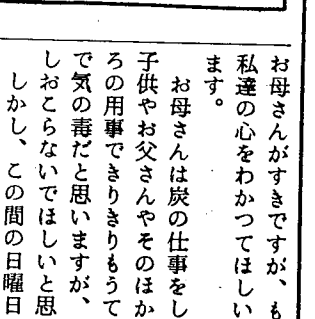 お母さんがすきですが、も
私達の心をわかつてほしい
ます。
お母さんは炭の仕事をし
子供やお父さんやそのほか
ろの用事できりきりもうて
で気の毒だと思いますが、
しおこらないでほしいと思
しかし、この間の日曜日